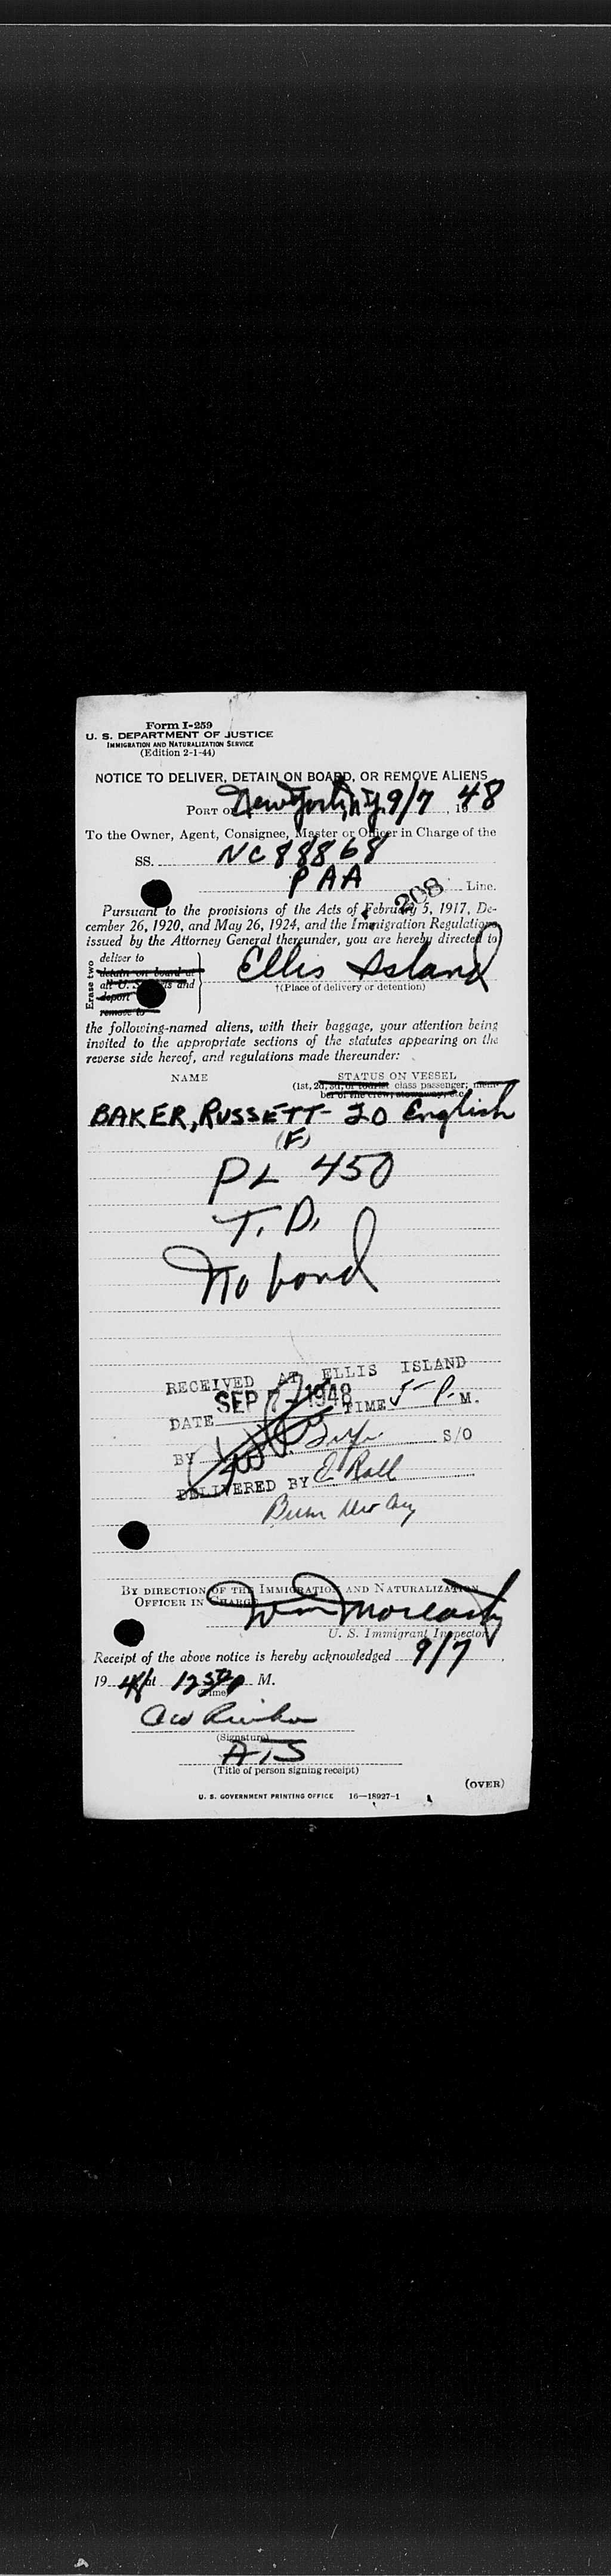 Form I-259
U. S. DEPARTMENT OF JUSTICE
IMMIGRATION AND NATURALIZATION SERVICE
(Edition 2-1-44)
NOTICE TO DELIVER, DETAIN ON BOARD, OR REMOVE ALIENS
PORT OF New York, N.Y. 9/7, 1948
To the Owner, Agent, Consignee, Master or Officer in Charge of the
SS. NC 88868
PAA Line.
208
Pursuant to the provisions of the Acts of February 5, 1917, De-
cember 26, 1920, and May 26, 1924, and the Immigration Regulations
issued by the Attorney General thereunder, you are hereby directed to
Erase two
deliver to
detain on board at
deport
remove to
Ellis Island
†(Place of delivery or detention)
the following-named aliens, with their baggage, your attention being
invited to the appropriate sections of the statutes appearing on the
reverse side hereof, and regulations made thereunder:
NAME STATUS ON VESSEL
(1st, 2d, 3d, or tourist class passenger; mem-
ber of the crew; stowaway, etc.)
BAKER, RUSSETT - 20 English
(F)
PL 450
T.D.
No bond
RECEIVED AT ELLIS ISLAND
DATE SEP 7 - 1948 TIME 5 - P. M.
BY S/O
DELIVERED BY E Rall
BY DIRECTION OF THE IMMIGRATION AND NATURALIZATION
OFFICER IN CHARGE
U. S. Immigrant Inspector
Receipt of the above notice is hereby acknowledged 9/7,
19 48 at M.
(Time)
(Signature)
ATS
(Title of person signing receipt)
(OVER)
U. S. GOVERNMENT PRINTING OFFICE 16—18927-1